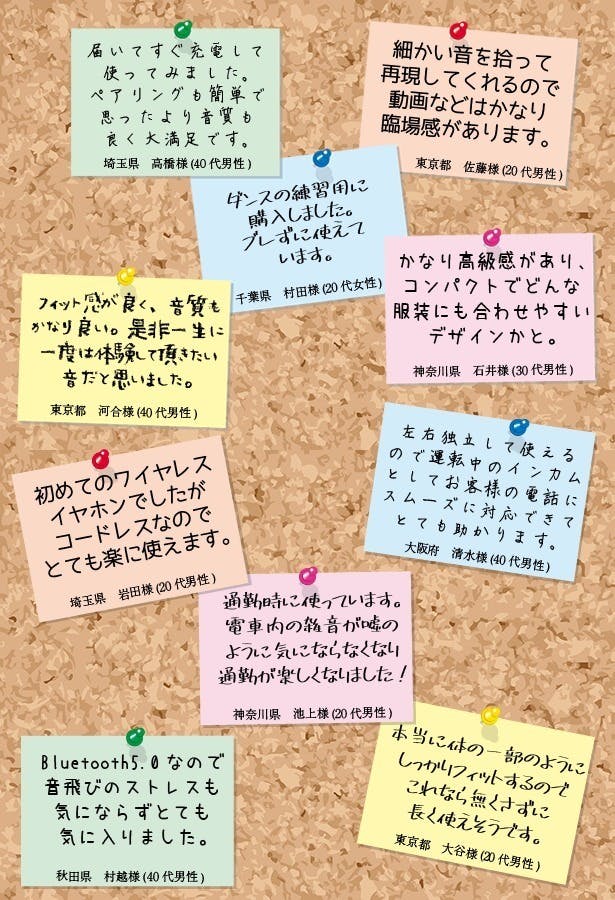 届いてすぐ充電して
使ってみました。
ペアリングも簡単で
思ったより音質も
良く大満足です。
埼玉県 高橋様(40代男性)
細かい音を拾って
再現してくれるので
動画などはかなり
臨場感があります。
東京都 佐藤様(20代男性)
ダンスの練習用に
購入しました。
ブレずに使えて
います。
千葉県 村田様(20代女性)
かなり高級感があり、
コンパクトでどんな
服装にも合わせやすい
デザインかと。
神奈川県 石井様(30代男性)
フィット感が良く、音質も
かなり良い。是非一生に
一度は体験して頂きたい
音だと思いました。
東京都 河合様(40代男性)
左右独立して使える
ので運転中のインカム
としてお客様の電話に
スムーズに対応できて
とても助かります。
大阪府 清水様(40代男性)
初めてのワイヤレス
イヤホンでしたが
コードレスなので
とても楽に使えます。
埼玉県 岩田様(20代男性)
通勤時に使っています。
電車内の雑音が嘘の
ように気にならなくなり
通勤が楽しくなりました!
神奈川県 池上様(20代男性)
Bluetooth5.0なので
音飛びのストレスも
気にならずとても
気に入りました。
秋田県 村越様(40代男性)
本当に体の一部のように
しっかりフィットするので
これなら無くさずに
長く使えそうです。
東京都 大谷様(20代男性)